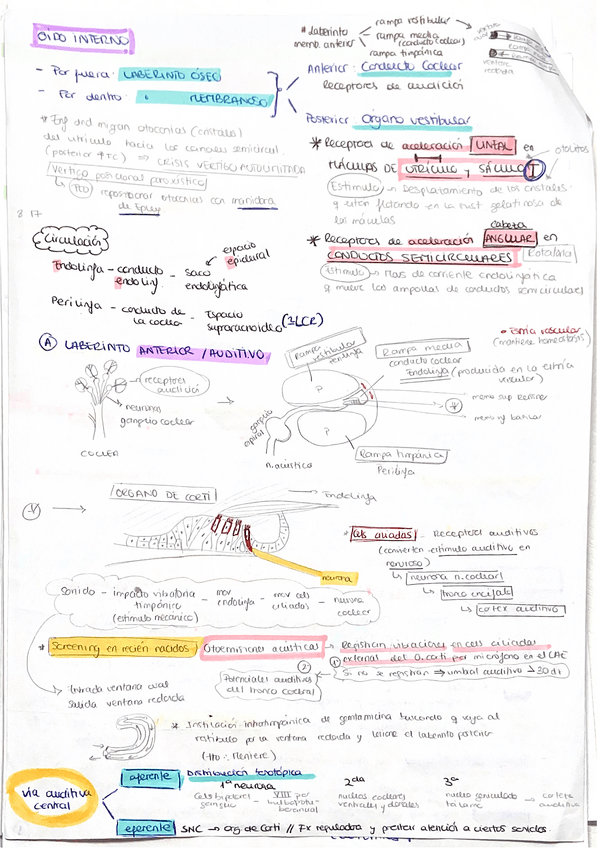 OÍDO INTERNO
- Por fuera: LABERINTO ÓSEO
- Por dentro: " MEMBRANOSO
* laberinto memb. anterior
rampa vestibular
rampa media
(conducto coclear)
rampa timpánica
Anterior: Conducto Coclear
Receptores de audición
Posterior: Órgano vestibular
* Enf dnd migan otoconias (cristales)
del utrículo hacia los canales semicircul.
(posterior ↑FC) ⇒ CRISIS VERTIGO AUTOLIMITADA
Vértigo posicional paroxístico
Tto reposicionar otoconias con maniobra
de Epley
8 17
* Receptores de aceleración LINEAL en
otolitos
MÁCULAS DE UTRÍCULO y SÁCULO
Estímulo: desplazamiento de los cristales
q están flotando en la sust gelatinosa de
las máculas
cabeza
* Receptores de aceleración ANGULAR en
CONDUCTOS SEMICIRCULARES Rotatoria
Estímulo → Flujo de corriente endolinfática
Circulación
espacio
epidural
Endolinfa - conducto endoling. - saco endolinfático
Perilinfa - conducto de la coclea - Espacio supraracnoideo (LCR)
A LABERINTO ANTERIOR / AUDITIVO
receptores audición
neuronas ganglio coclear
COCLEA
Rampa vestibular
Perilinfa
P
P
ganglio espiral
n. acústico
Rampa media
conducto coclear
Endolinfa (producida en la estría vascular)
• Estría vascular
(mantiene homeostasis)
memb sup Reissner
memb basilar
Rampa timpánica
Perilinfa
ÓRGANO DE CORTI
Endolinfa
neurona
* Cels ciliadas - Receptores auditivos
(convierten estímulo auditivo en
nervioso)
↳ neurona n. coclear
↳ tronco encéfalo
↳ cortex auditivo
sonido - impacto vibratorio timpánico (estímulo mecánico) - mov endolinfa - mov cels ciliadas - neurona coclear
* Screening en recién nacidos
Otoemisiones acústicas → Registran vibraciones en cels ciliadas
① externas del O. corti por micrófono en el CAE
Si no se registran ⇒ umbral auditivo > 30 dB
②
Potenciales auditivos
del tronco cerebral
→ Entrada ventana oval
Salida ventana redonda
* Instilación intratimpánica de gentamicina buscando q vaya al
vestíbulo por la ventana redonda y lesione el laberinto posterior
(tto: Meniere)
vía auditiva central
aferente
Distribución tonotópica
1ª neurona
2da
3ª
nucleos cocleares
ventrales y dorsales
nucleo geniculado
talamo
→ corteza
auditiva
eferente
SNC → org de Corti // Fx reguladora y prestar atención a ciertos sonidos.